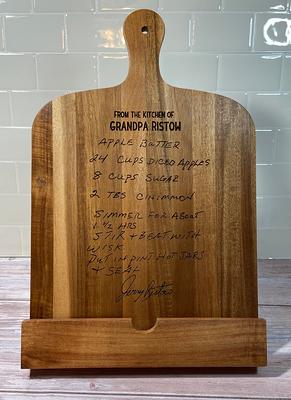 FROM THE KITCHEN OF
GRANDPA RISTOW
APPLE BUTTER
24 CUPS DICED APPLES
8 CUPS SUGAR
2 TBS CINIMMON
SIMMER FOR ABOUT
1 1/2 HRS
STIR + BEAT WITH
WISK
PUT IN PINT HOT JARS
& SEAL
Jerry Ristow